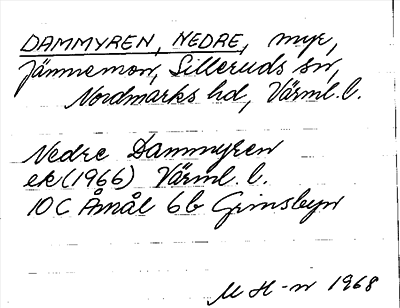 DAMMYREN, NEDRE, myr,
Jännemon, Silleruds sn,
Nordmarks hd, Värml. l.
Nedre Dammyren
ek (1966) Värml. l.
10 C Åmål 6b Grinsbyn
M H-n 1968